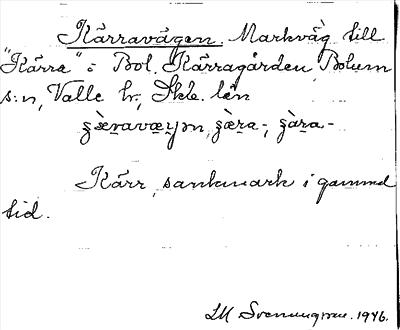 Kärravägen. Markväg till
"Kärra" i Bol. Kärragården, Bolum
s:n, Valle hr, Skb. län
Kärr, sankmark i gammal
tid.
LM Svenungsson. 1946.